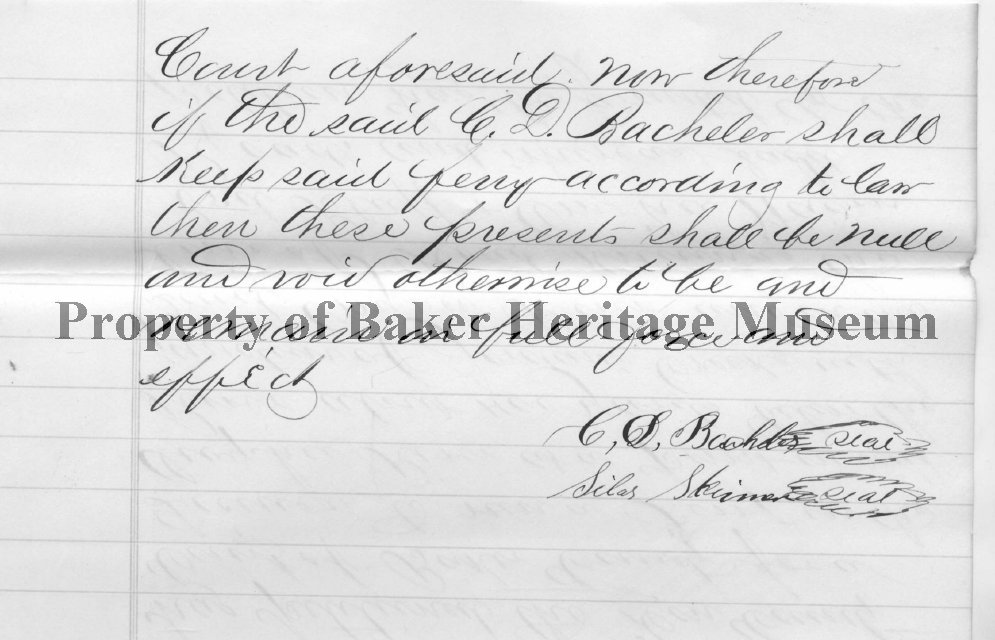 Court aforesaid. now therefore
if the said C. D. Bacheler shall
Keep said ferry according to law
then these presents shall be null
and void otherwise to be and
Property of Baker Heritage Museum
remain in full force and
effect
C, D, Bacheler seal
Silas Skinner seal